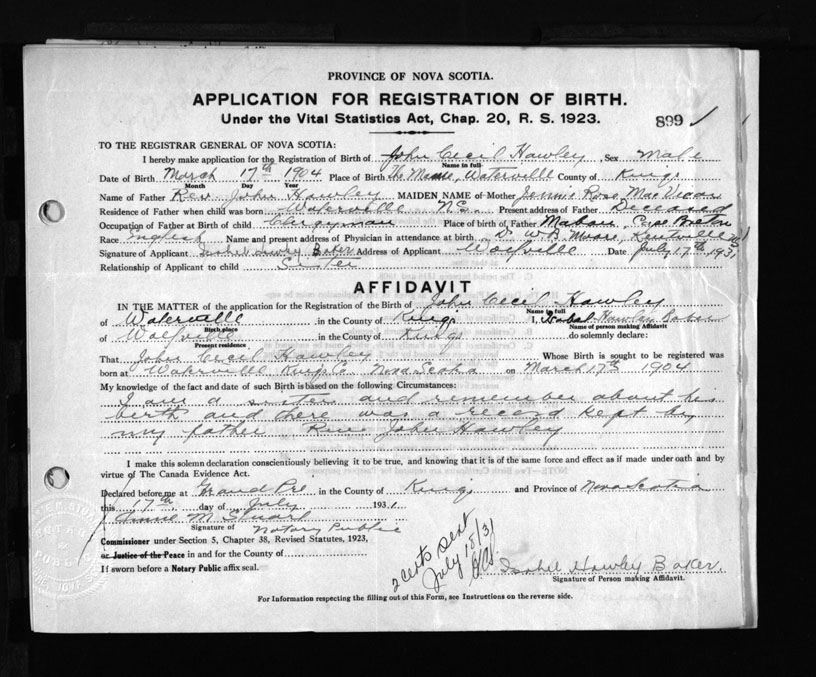 PROVINCE OF NOVA SCOTIA.
APPLICATION FOR REGISTRATION OF BIRTH.
Under the Vital Statistics Act, Chap. 20, R. S. 1923.
899
TO THE REGISTRAR GENERAL OF NOVA SCOTIA:
I hereby make application for the Registration of Birth of John Cecil Hawley Sex Male
Name in full
Date of Birth March 17th 1904 Place of Birth The Manse, Waterville County of Kings
Month Day Year
Name of Father Rev John Hawley MAIDEN NAME of Mother Jennie Rose MacVicar
Residence of Father when child was born Waterville N.S. Present address of Father Deceased
Occupation of Father at Birth of child Clergyman Place of birth of Father Mabou, Cape Breton
Race English Name and present address of Physician in attendance at birth Dr W B Moore, Kentville
Signature of Applicant Isabel Hawley Baker Address of Applicant Wolfville Date July 17th 1931
Relationship of Applicant to child Sister
AFFIDAVIT
IN THE MATTER of the application for the Registration of the Birth of John Cecil Hawley
Name in full
of Waterville in the County of Kings I, Isabel Hawley Baker
Birth place Name of person making Affidavit
of Wolfville in the County of Kings do solemnly declare:
Present residence
That John Cecil Hawley Whose Birth is sought to be registered was
born at Waterville Kings Co Nova Scotia on March 17th 1904
My knowledge of the fact and date of such Birth is based on the following Circumstances:
I am a sister and remember about his
birth and there was a record kept by
my father Rev John Hawley
I make this solemn declaration conscientiously believing it to be true, and knowing that it is of the same force and effect as if made under oath and by
virtue of The Canada Evidence Act.
Declared before me at Grand Pré in the County of Kings and Province of Nova Scotia
this 17th day of July 1931
Annie M Stuart
Signature of Notary Public
Commissioner under Section 5, Chapter 38, Revised Statutes, 1923,
or Justice of the Peace in and for the County of
If sworn before a Notary Public affix seal.
2 certs sent
July 18/31
Isabel Hawley Baker
Signature of Person making Affidavit.
For Information respecting the filling out of this Form, see Instructions on the reverse side.